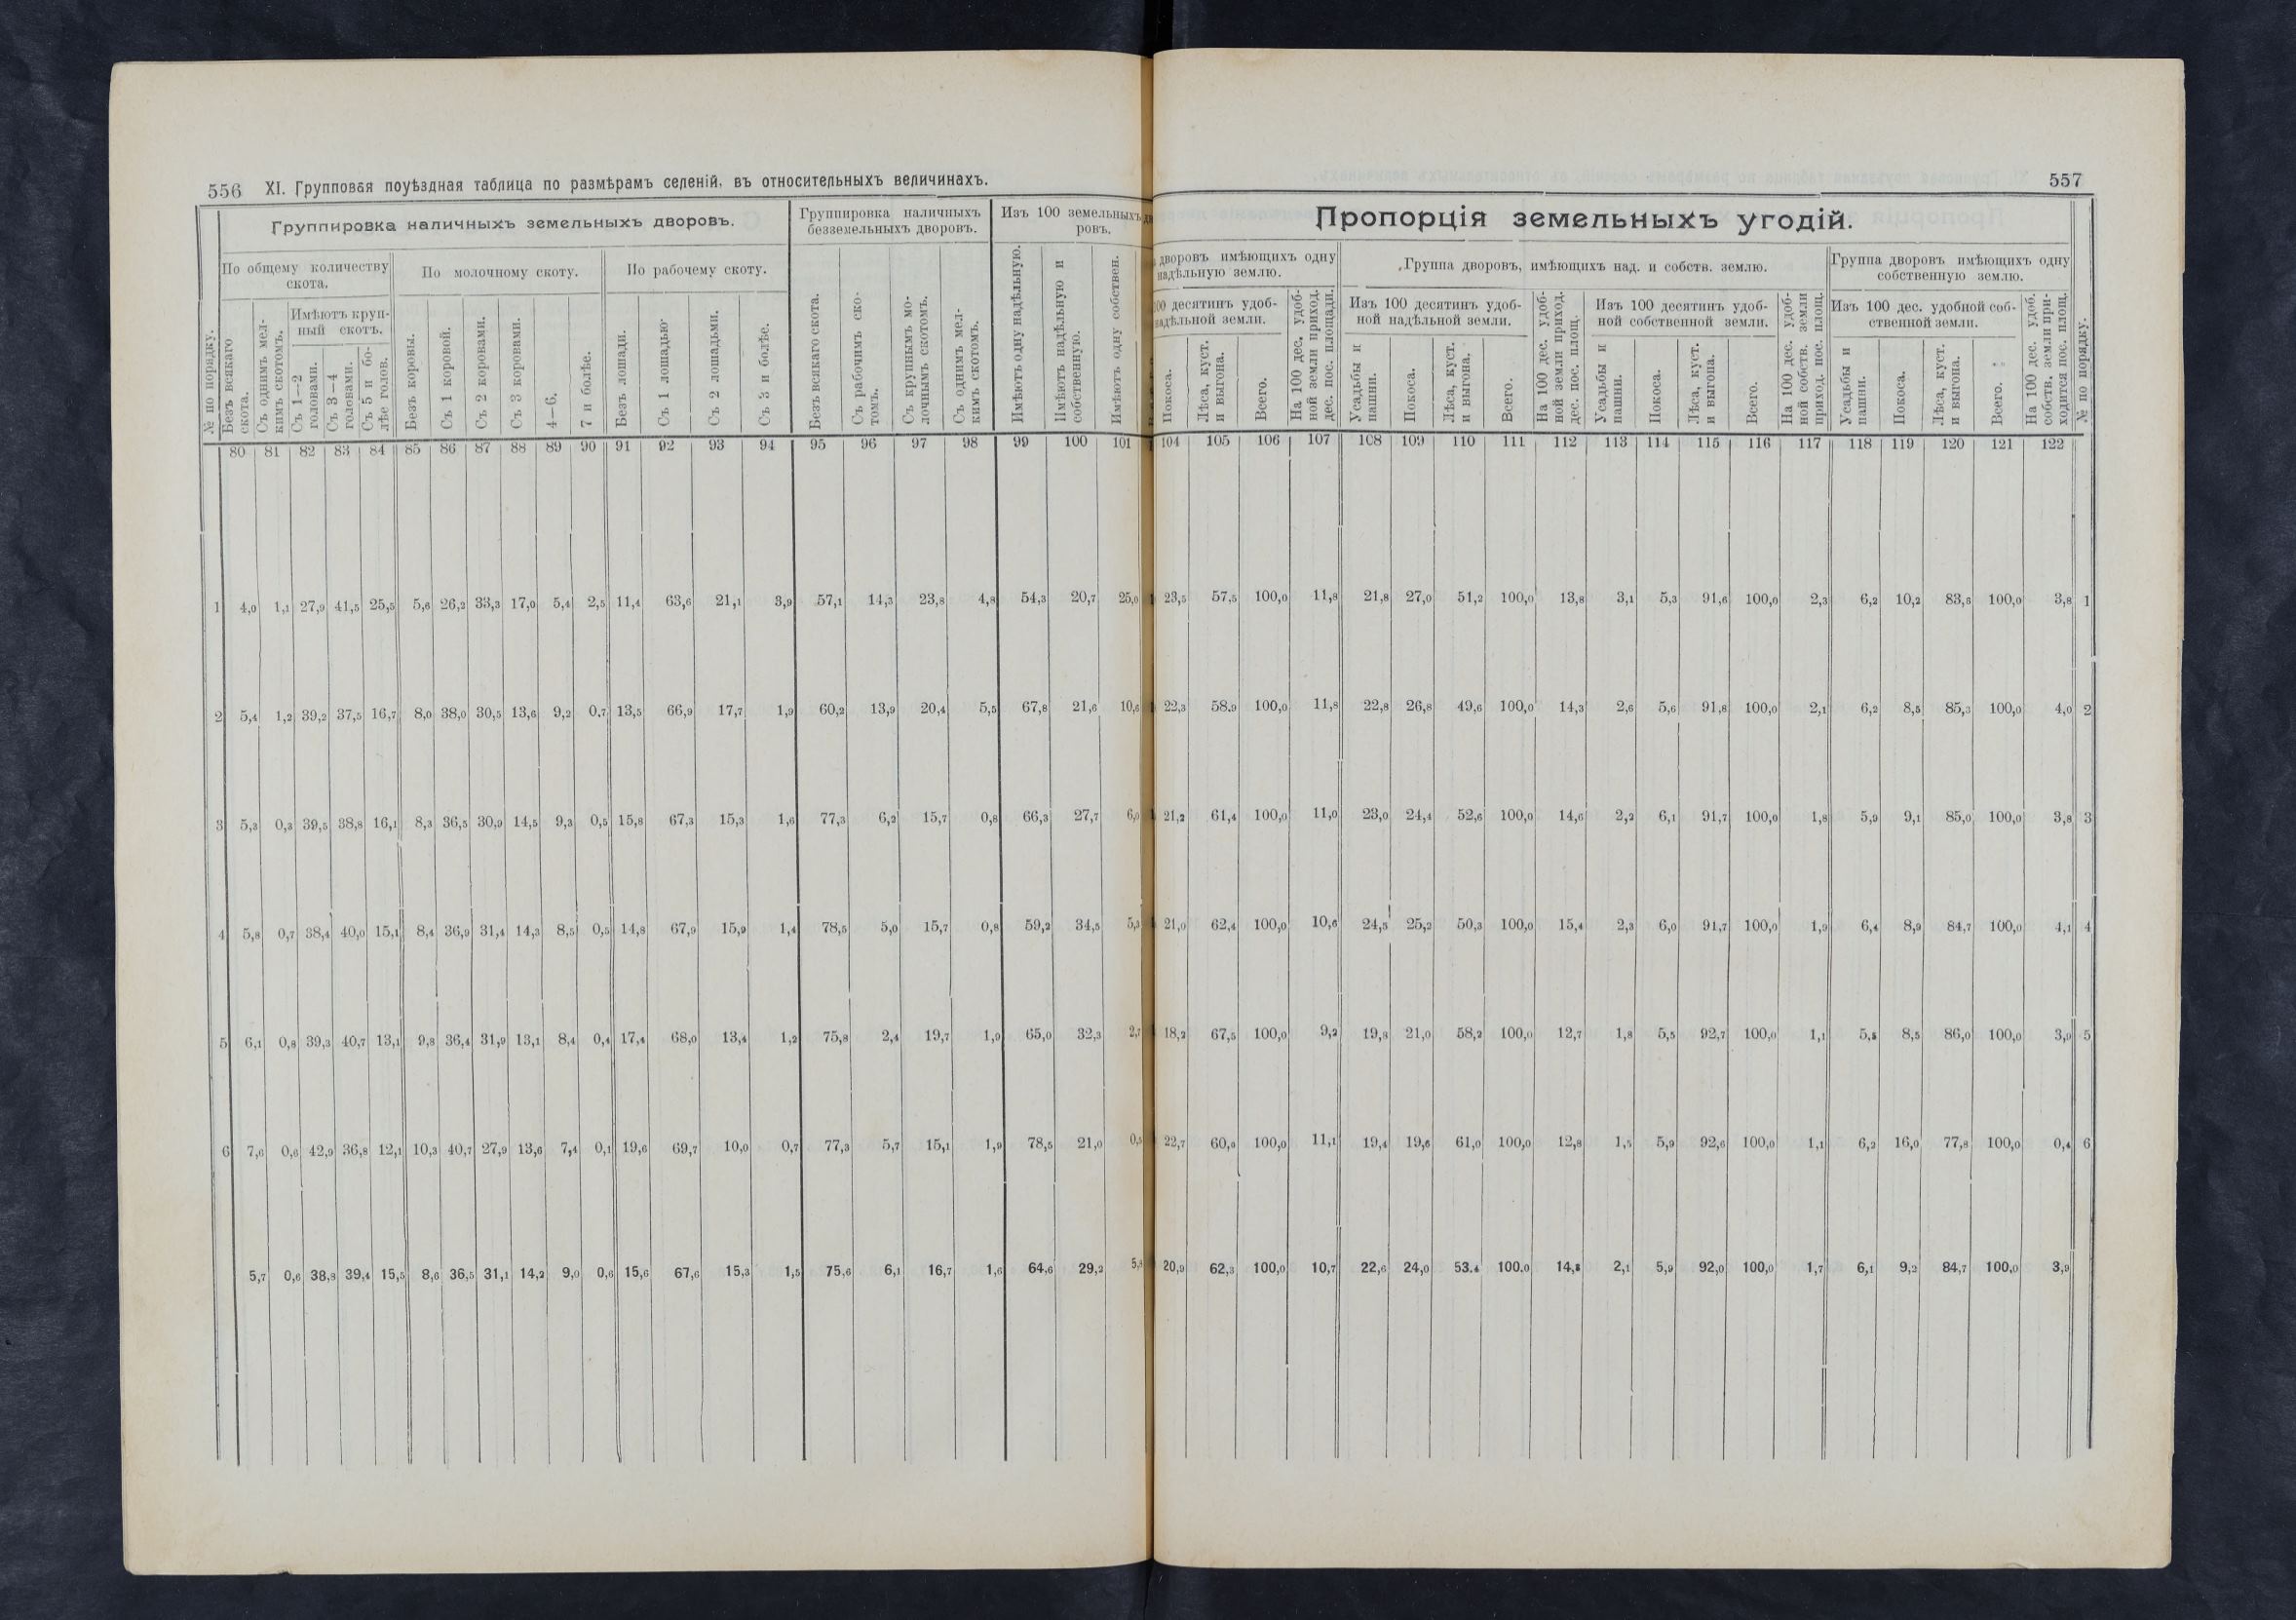 556 XI. Групповая поуѣздная таблица по размѣрамъ селеній, въ относительныхъ величинахъ.
№ по порядку.
Группировка наличныхъ земельныхъ дворовъ.
По общему количеству скота.
Безъ всякаго скота.
Съ однимъ мелкимъ скотомъ.
Имѣютъ крупный скотъ.
Съ 1—2 головами.
Съ 3—4 головами.
Съ 5 и болѣе голов.
По молочному скоту.
Безъ коровы.
Съ 1 коровой.
Съ 2 коровами.
Съ 3 коровами.
4—6.
7 и болѣе.
По рабочему скоту.
Безъ лошади.
Съ 1 лошадью.
Съ 2 лошадьми.
Съ 3 и болѣе.
Группировка наличныхъ безземельныхъ дворовъ.
Безъ всякаго скота.
Съ рабочимъ скотомъ.
Съ крупнымъ молочнымъ скотомъ.
Съ однимъ мелкимъ скотомъ.
Изъ 100 земельныхъ дворовъ.
Имѣютъ одну надѣльную.
Имѣютъ надѣльную и собственную.
Имѣютъ одну собствен.
80 81 82 83 84 85 86 87 88 89 90 91 92 93 94 95 96 97 98 99 100 101
1 4,0 1,1 27,9 41,5 25,5 5,6 26,2 33,3 17,0 5,4 2,5 11,4 63,6 21,1 3,9 57,1 14,3 23,8 4,8 54,3 20,7 25,0
2 5,4 1,2 39,2 37,5 16,7 8,0 38,0 30,5 13,6 9,2 0,7 13,5 66,9 17,7 1,9 60,2 13,9 20,4 5,5 67,8 21,6 10,6
3 5,3 0,3 39,5 38,8 16,1 8,3 36,5 30,9 14,5 9,3 0,5 15,8 67,3 15,3 1,6 77,3 6,2 15,7 0,8 66,3 27,7 6,0
4 5,8 0,7 38,4 40,0 15,1 8,4 36,9 31,4 14,3 8,5 0,5 14,8 67,9 15,9 1,4 78,5 5,0 15,7 0,8 59,2 34,5 5,3
5 6,1 0,8 39,3 40,7 13,1 9,8 36,4 31,9 13,1 8,4 0,4 17,4 68,0 13,4 1,2 75,8 2,4 19,7 1,9 65,0 32,3 2,7
6 7,6 0,6 42,9 36,8 12,1 10,3 40,7 27,9 13,6 7,4 0,1 19,6 69,7 10,0 0,7 77,3 5,7 15,1 1,9 78,5 21,0 0,5
5,7 0,6 38,8 39,4 15,5 8,6 36,5 31,1 14,2 9,0 0,6 15,6 67,6 15,3 1,5 75,6 6,1 16,7 1,6 64,6 29,2
557
Пропорція земельныхъ угодій.
дворовъ имѣющихъ одну надѣльную землю.
100 десятинъ удобнадѣльной земли.
Покоса.
Лѣса, куст. и выгона.
Всего.
На 100 дес. удобной земли приход. дес. пос. площади.
Группа дворовъ, имѣющихъ над. и собств. землю.
Изъ 100 десятинъ удобной надѣльной земли.
Усадьбы и пашни.
Покоса.
Лѣса, куст. и выгона.
Всего.
На 100 дес. удобной земли приход. дес. пос. площ.
Изъ 100 десятинъ удобной собственной земли.
Усадьбы и пашни.
Покоса.
Лѣса, куст. и выгона.
Всего.
На 100 дес. удобной собств. земли приход. пос. площ.
Группа дворовъ имѣющихъ одну собственную землю.
Изъ 100 дес. удобной собственной земли.
Усадьбы и пашни.
Покоса.
Лѣса, куст. и выгона.
Всего.
На 100 дес. удоб. собств. земли приходится пос. площ.
№ по порядку.
104 105 106 107 108 109 110 111 112 113 114 115 116 117 118 119 120 121 122
23,5 57,5 100,0 11,8 21,8 27,0 51,2 100,0 13,8 3,1 5,3 91,6 100,0 2,3 6,2 10,2 83,6 100,0 3,8 1
22,3 58,9 100,0 11,8 22,8 26,8 49,6 100,0 14,3 2,6 5,6 91,8 100,0 2,1 6,2 8,5 85,3 100,0 4,0 2
21,2 61,4 100,0 11,0 23,0 24,4 52,6 100,0 14,6 2,2 6,1 91,7 100,0 1,8 5,9 9,1 85,0 100,0 3,8 3
21,0 62,4 100,0 10,6 24,5 25,2 50,3 100,0 15,4 2,3 6,0 91,7 100,0 1,9 6,4 8,9 84,7 100,0 4,1 4
18,2 67,5 100,0 9,2 19,8 21,0 58,2 100,0 12,7 1,8 5,5 92,7 100,0 1,1 5,5 8,5 86,0 100,0 3,9 5
22,7 60,9 100,0 11,1 19,4 19,6 61,0 100,0 12,8 1,5 5,9 92,6 100,0 1,1 6,2 16,0 77,8 100,0 0,4 6
20,9 62,3 100,0 10,7 22,6 24,0 53.4 100.0 14,8 2,1 5,9 92,0 100,0 1,7 6,1 9,2 84,7 100,0 3,9